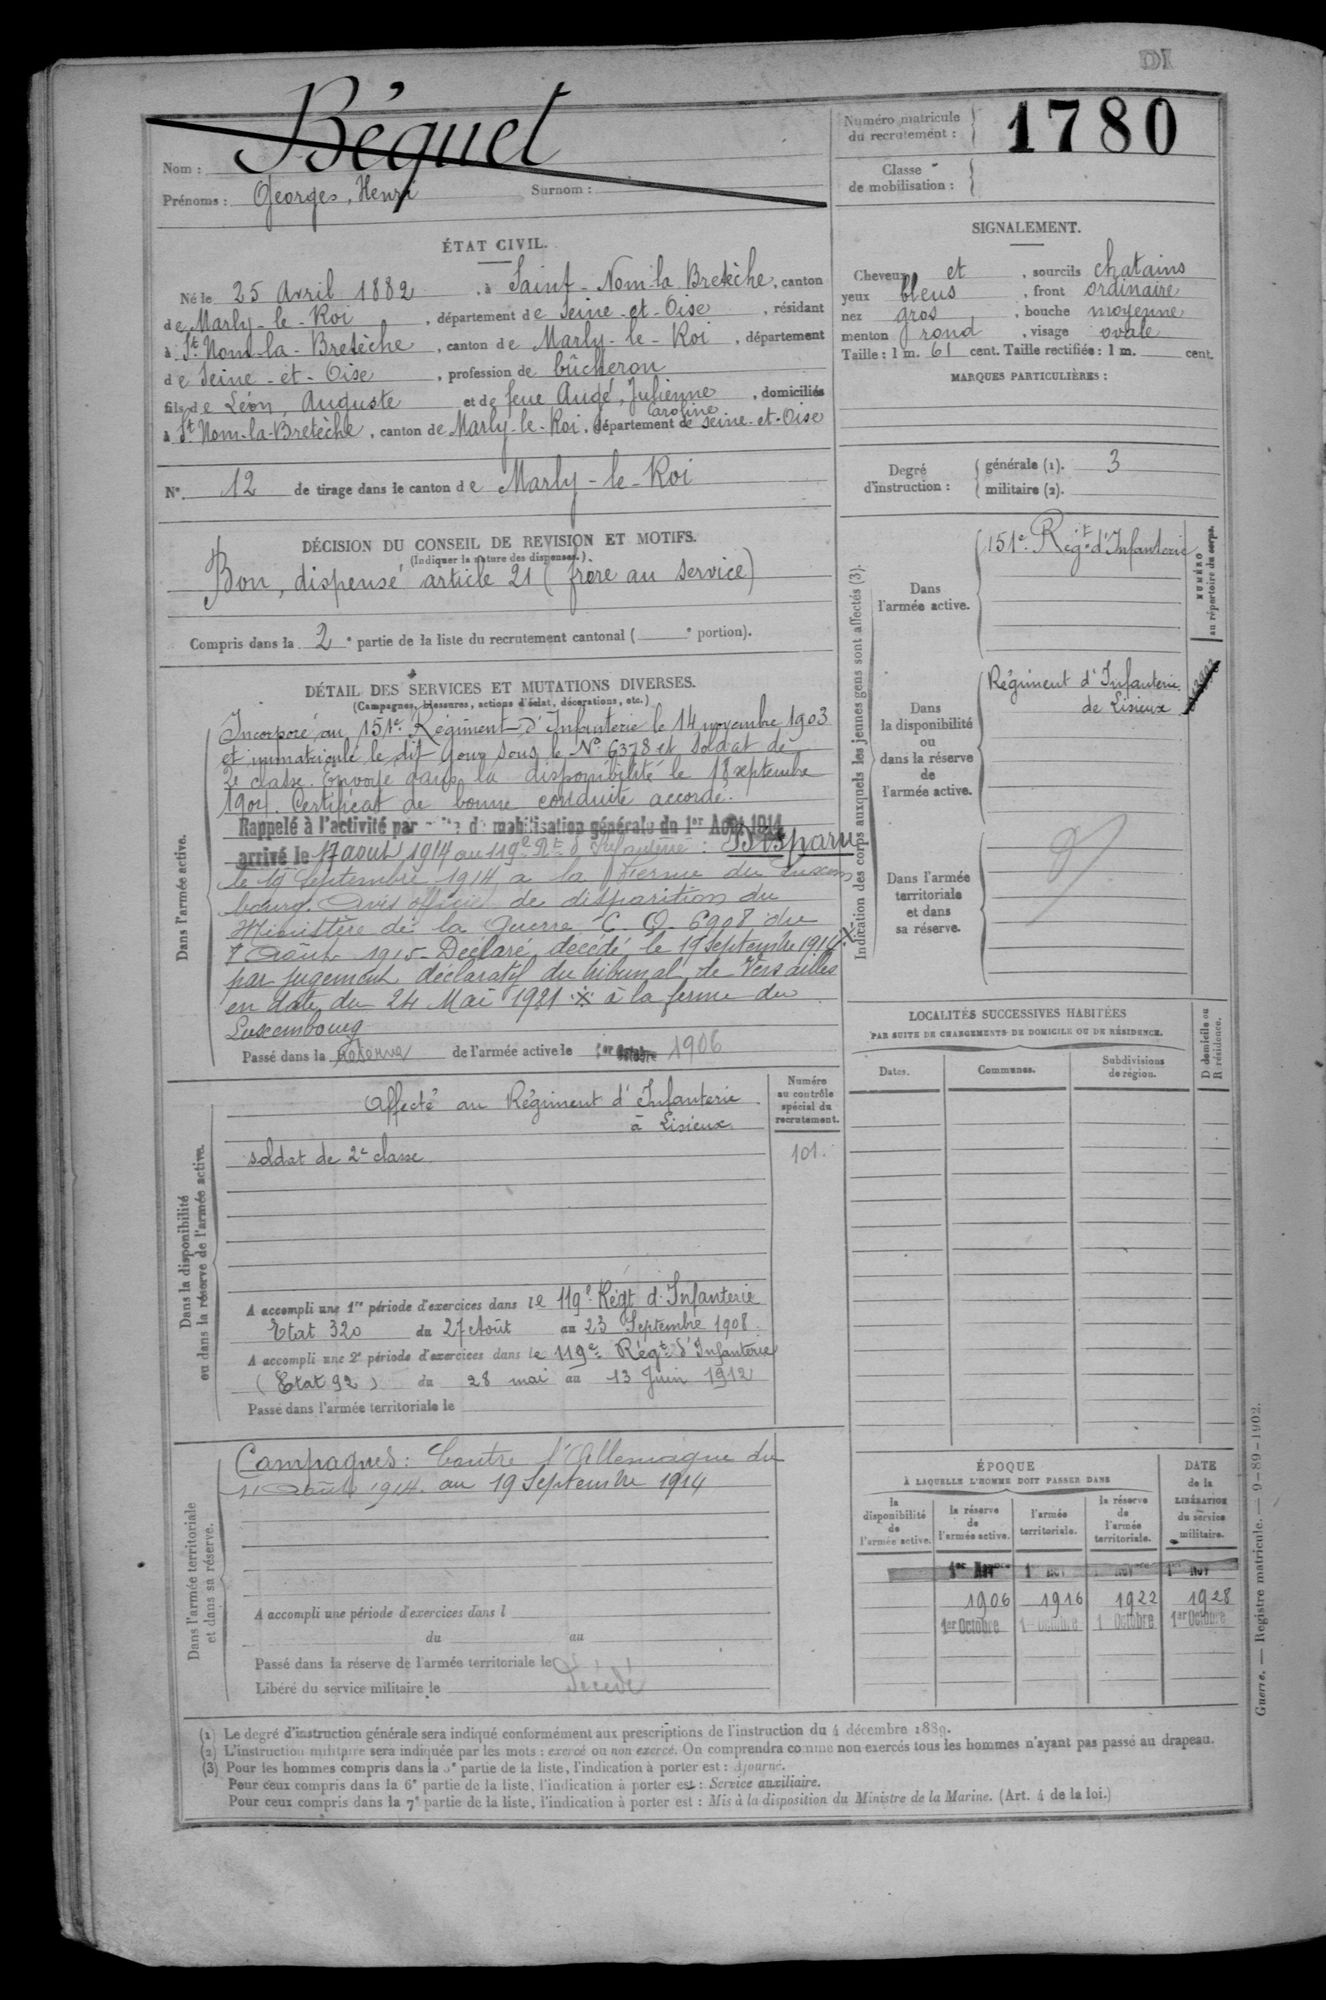 Nom : Béquet
Prénoms : Georges, Henri Surnom :
Numéro matricule
du recrutement :
1780
Classe
de mobilisation :
ÉTAT CIVIL.
Né le 25 Avril 1882, à Saint-Nom-la Bretèche, canton
de Marly-le-Roi, département de Seine-et-Oise, résidant
à St Nom-la-Bretèche, canton de Marly-le-Roi, département
de Seine-et-Oise, profession de bûcheron
fils de Léon, Auguste et de feue Augé, Julienne
Caroline
, domiciliés
à St Nom-la-Bretèche, canton de Marly-le-Roi, département de Seine-et-Oise
N° 12 de tirage dans le canton de Marly-le-Roi
SIGNALEMENT.
Cheveux et, sourcils chatains
yeux bleus, front ordinaire
nez gros, bouche moyenne
menton rond, visage ovale
Taille : 1 m. 61 cent. Taille rectifiée : 1 m. cent.
MARQUES PARTICULIÈRES :
Degré
d'instruction :
générale (1). 3
militaire (2).
DÉCISION DU CONSEIL DE REVISION ET MOTIFS.
(Indiquer la nature des dispenses.)
Bon, dispensé article 21 (frère au service)
Compris dans la 2e partie de la liste du recrutement cantonal ( e portion).
DÉTAIL DES SERVICES ET MUTATIONS DIVERSES.
(Campagnes, blessures, actions d'éclat, décorations, etc.)
Dans l'armée active.
Incorporé au 151e Régiment d'Infanterie le 14 novembre 1903
et immatriculé le dit jour sous le No 6378 et soldat de
2e classe. Envoyé dans la disponibilité le 18 septembre
1904. Certificat de bonne conduite accordé.
Rappelé à l'activité par de mobilisation générale du 1er Août 1914
arrivé le 17 aout 1914 au 119e Rt d'Infanterie : Disparu
le 19 Septembre 1914 à la Ferme du Luxem
bourg. Avis officiel de disparition du
Ministère de la Guerre C. Q. 6908 du
7 Août 1915- Déclaré décédé le 19 septembre 1914 X
par jugement déclaratif du tribunal de Versailles
en date du 24 Mai 1921 X à la ferme du
Luxembourg
Passé dans la réserve de l'armée active le 1er Octobre 1906
Indication des corps auxquels les jeunes gens sont affectés (3).
Dans
l'armée active.
151e Régt d'Infanterie
NUMÉRO
au répertoire du corps.
Dans
la disponibilité
ou
dans la réserve
de
l'armée active.
Régiment d'Infanterie
de Lisieux
Dans l'armée
territoriale
et dans
sa réserve.
LOCALITÉS SUCCESSIVES HABITÉES
PAR SUITE DE CHANGEMENTS DE DOMICILE OU DE RÉSIDENCE.
Dates.
Communes.
Subdivisions
de région.
D domicile ou
R résidence.
Dans la disponibilité
ou dans la réserve de l'armée active.
Affecté au Régiment d'Infanterie
à Lisieux
soldat de 2e classe
Numéro
au contrôle
spécial du
recrutement.
101.
A accompli une 1re période d'exercices dans le 119e Régt d'Infanterie
Etat 320 du 27 Août au 23 Septembre 1908.
A accompli une 2e période d'exercices dans le 119e Régt d'Infanterie
(Etat 92) du 28 mai au 13 Juin 1912
Passé dans l'armée territoriale le
Dans l'armée territoriale
et dans sa réserve.
Campagnes : Contre l'Allemagne du
11 Août 1914. au 19 Septembre 1914
A accompli une période d'exercices dans l
du au
Passé dans la réserve de l'armée territoriale le
Libéré du service militaire le Décédé
ÉPOQUE
À LAQUELLE L'HOMME DOIT PASSER DANS
la
disponibilité
de
l'armée active.
la réserve
de
l'armée active.
l'armée
territoriale.
la réserve
de
l'armée
territoriale.
DATE
de la
LIBÉRATION
du service
militaire.
1906 1916 1922 1928
1er Octobre 1 Octobre 1 Octobre 1er Octobre
(1) Le degré d'instruction générale sera indiqué conformément aux prescriptions de l'instruction du 4 décembre 1889.
(2) L'instruction militaire sera indiquée par les mots : exercé ou non exercé. On comprendra comme non exercés tous les hommes n'ayant pas passé au drapeau.
(3) Pour les hommes compris dans la 5e partie de la liste, l'indication à porter est : Ajourné.
Pour ceux compris dans la 6e partie de la liste, l'indication à porter est : Service auxiliaire.
Pour ceux compris dans la 7e partie de la liste, l'indication à porter est : Mis à la disposition du Ministre de la Marine. (Art. 4 de la loi.)
Guerre. — Registre matricule. — 9-89-1902.